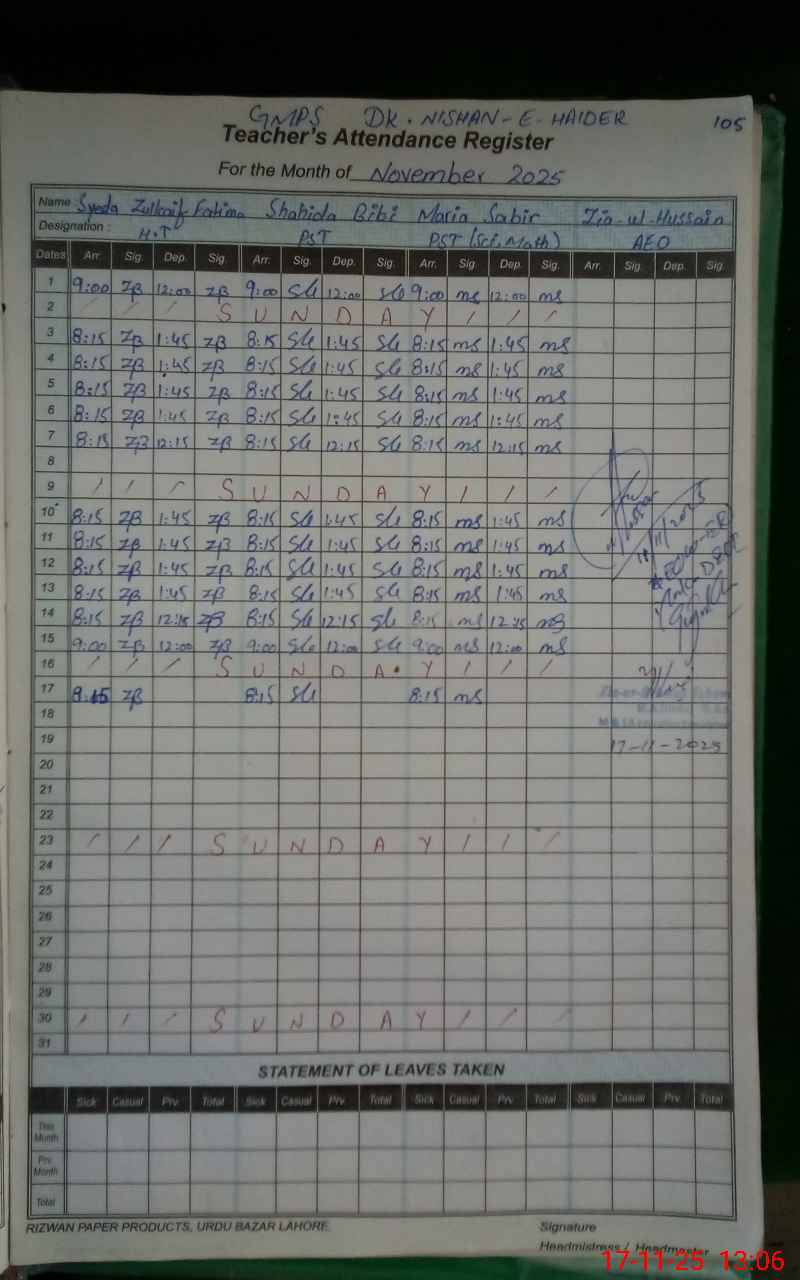 GMPS DK. NISHAN-E-HAIDER 105
Teacher's Attendance Register
For the Month of November 2025
Name : Syeda Zulknaif Fatima Shahida Bibi Maria Sabir Zia-ul-Hussain
Designation : H.T PST PST (Sci, Math) AEO
Dates Arr. Sig. Dep. Sig. Arr. Sig. Dep. Sig. Arr. Sig. Dep. Sig. Arr. Sig. Dep. Sig.
1 9:00 ZB 12:00 ZB 9:00 Sle 12:00 Sle 9:00 ms 12:00 ms
2 / / / S U N D A Y / / /
3 8:15 ZB 1:45 ZB 8:15 Sle 1:45 Sle 8:15 ms 1:45 ms
4 8:15 ZB 1:45 ZB 8:15 Sle 1:45 Sle 8:15 ms 1:45 ms
5 8:15 ZB 1:45 ZB 8:15 Sle 1:45 Sle 8:15 ms 1:45 ms
6 8:15 ZB 1:45 ZB 8:15 Sle 1:45 Sle 8:15 ms 1:45 ms
7 8:15 ZB 12:15 ZB 8:15 Sle 12:15 Sle 8:15 ms 12:15 ms
8
9 / / / S U N D A Y / / /
10 8:15 ZB 1:45 ZB 8:15 Sle 1:45 Sle 8:15 ms 1:45 ms
11 8:15 ZB 1:45 ZB 8:15 Sle 1:45 Sle 8:15 ms 1:45 ms
12 8:15 ZB 1:45 ZB 8:15 Sle 1:45 Sle 8:15 ms 1:45 ms
13 8:15 ZB 1:45 ZB 8:15 Sle 1:45 Sle 8:15 ms 1:45 ms
14 8:15 ZB 12:15 ZB 8:15 Sle 12:15 Sle 8:15 ms 12:15 ms
15 9:00 ZB 12:00 ZB 9:00 Sle 12:00 Sle 9:00 ms 12:00 ms
16 / / / S U N D A Y / / /
17 8:15 ZB 8:15 Sle 8:15 ms
18
19 17-11-2025
20
21
22
23 / / / S U N D A Y / / /
24
25
26
27
28
29
30 / / / S U N D A Y / / /
31
STATEMENT OF LEAVES TAKEN
Sick Casual Prv. Total Sick Casual Prv. Total Sick Casual Prv. Total Sick Casual Prv. Total
This Month
Prv. Month
Total
RIZWAN PAPER PRODUCTS, URDU BAZAR LAHORE.
Signature
Headmistress / Headmaster
17-11-25 13:06